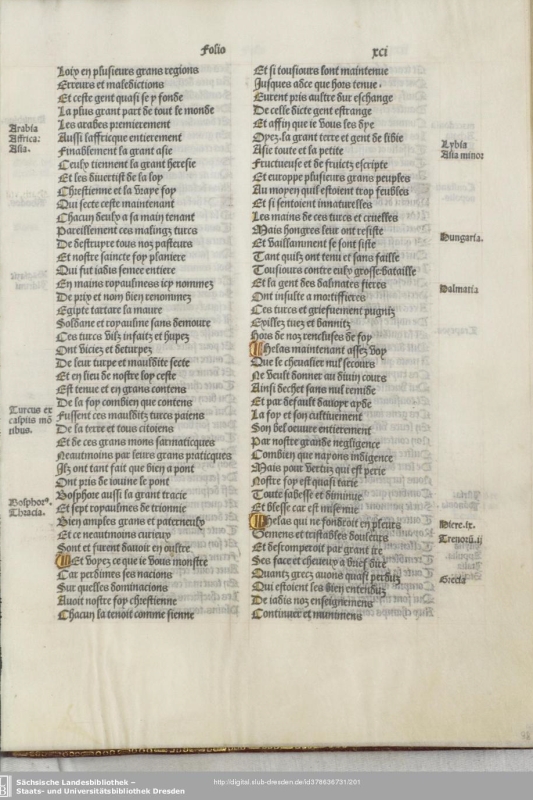 Folio xci
Loix en plusieurs grans regions
Erreurs et maledictions
Et ceste gent quasi se y fonde
La plus grant part de tout le monde
Arabia
Les arabes premierement
Affrica:
Aussi laffricque entierement
Asia.
Finablement la grant asie
Ceulx tiennent la grant heresie
Et les divertist de la loy
Chrestienne et la vraye foy
Qui secte ceste maintenant
Chacun deulx a sa main tenant
Pareillement ces malingz turcs
De destruyre tous noz pasteurs
Et nostre saincte foy planiere
Qui fut iadis semee entiere
En mains royaulmes icy nommez
De prix et nom bien renommez
Egipte tartare la maure
Soldane et royaulme sans demoure
Ces turcs vilz infaitz et huyez
Ont viciez et deturpez
De leur turpe et mauldite secte
Et en lieu de nostre foy ceste
Est tenue et en grans contens
De la foy combien que contens
Turcus ex
Fussent ces maulditz turcs paiens
caspiis mõ
De la terre et tous citoiens
tibus.
Et de ces grans mons sarmaticques
Neautmoins par leurs grans praticques
Ilz ont tant fait que bien a pont
Ont pris de iouine le pont
Bosphorꝰ.
Bosphore aussi la grant tracie
Thracia.
Et sept royaulmes de trionnie
Bien amples grans et paterneulx
Et ce neautmoins curieux
Sont et furent davoir en oultre
Et voyez ce que ie vous monstre
Car perdimes ses nacions
Sur quelles dominacions
Avoit nostre foy chrestienne
Chacun la tenoit comme sienne
Et si tousiours sont maintenue
Jusques adce que hors tenue.
Eurent pris aultre dur eschange
De celle dicte gent estrange
Et affin que ie vous les dye
Oyez. la grant terre et gent de libie
Lybia
Asie toute et la petite
Asia minor
Fructueuse et de fruictz escripte
Et europpe plusieurs grans peuples
Au moyen quil estoient trop feubles
Et si sentoient innaturelles
Les mains de ces turcs et cruelles
Mais hongres leur ont resiste
Hungaria.
Et vaillamment se sont siste
Tant quilz ont tenu et sans faille
Tousiours contre eulx grosse bataille
Et la gent des dalmates fieres
Dalmatia
Ont insulte a mortiffieres
Ces turcs et griefuement pugniz
Exillez tuez et bannitz
Hors de noz renclusses de foy
Helas maintenant assez voy
Que le chevalier nul secours
Ne veult donner au divin cours
Ainsi dechet sans nul remide
Et par default davoir ayde
La foy et son cultiuement
Son bel oeuvre entierement
Par nostre grande negligence
Combien que nayons indigence
Mais pour vertuz qui est perie
Nostre foy est quasi tarie
Toute fabesse et diminue
Et blesse car est mise nue
Helas qui ne fondroit en pleurs
Hiere.ix.
Gemens et tristables douleurs
Trenorũ.ij
Et destomperoit par grant ire
Ses face et cheveux a brief dire
Quantz grecz avons quasi perduz
Grecia
Qui estoient les bien entenduz
De iadis noz enseignemens
Continuer et munimens
91
Sächsische Landesbibliothek –
Staats- und Universitätsbibliothek Dresden
http://digital.slub-dresden.de/id378636731/201